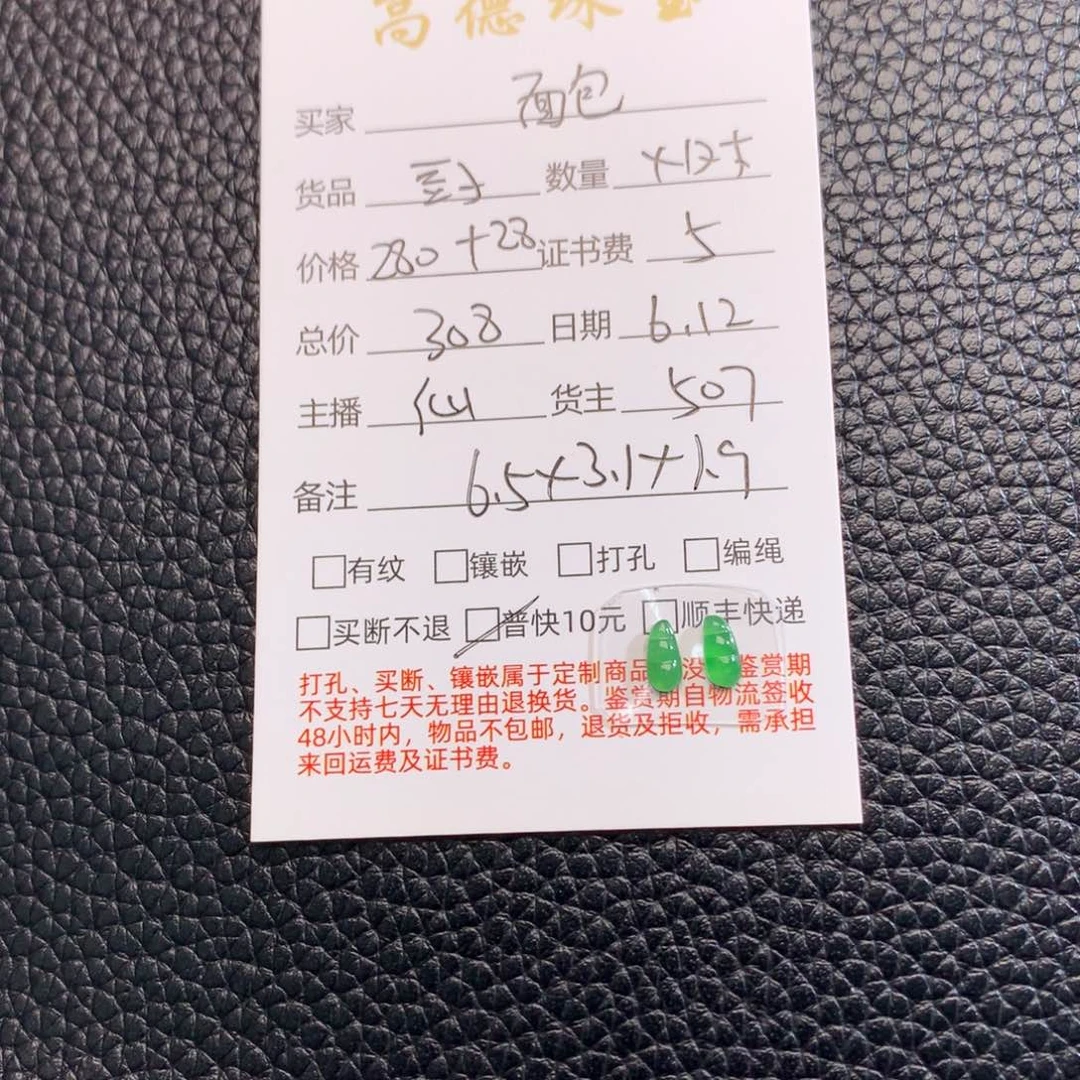 高德珠宝
买家 面包
货品 豆子 数量 x1对
价格 280+28 证书费 5
总价 308 日期 6.12
主播 仙 货主 507
备注 6.5x3.1x1.9
有纹 镶嵌 打孔 编绳
买断不退 普快10元 顺丰快递
打孔、买断、镶嵌属于定制商品 没 鉴赏期
不支持七天无理由退换货。鉴赏期自物流签收
48小时内，物品不包邮，退货及拒收，需承担
来回运费及证书费。